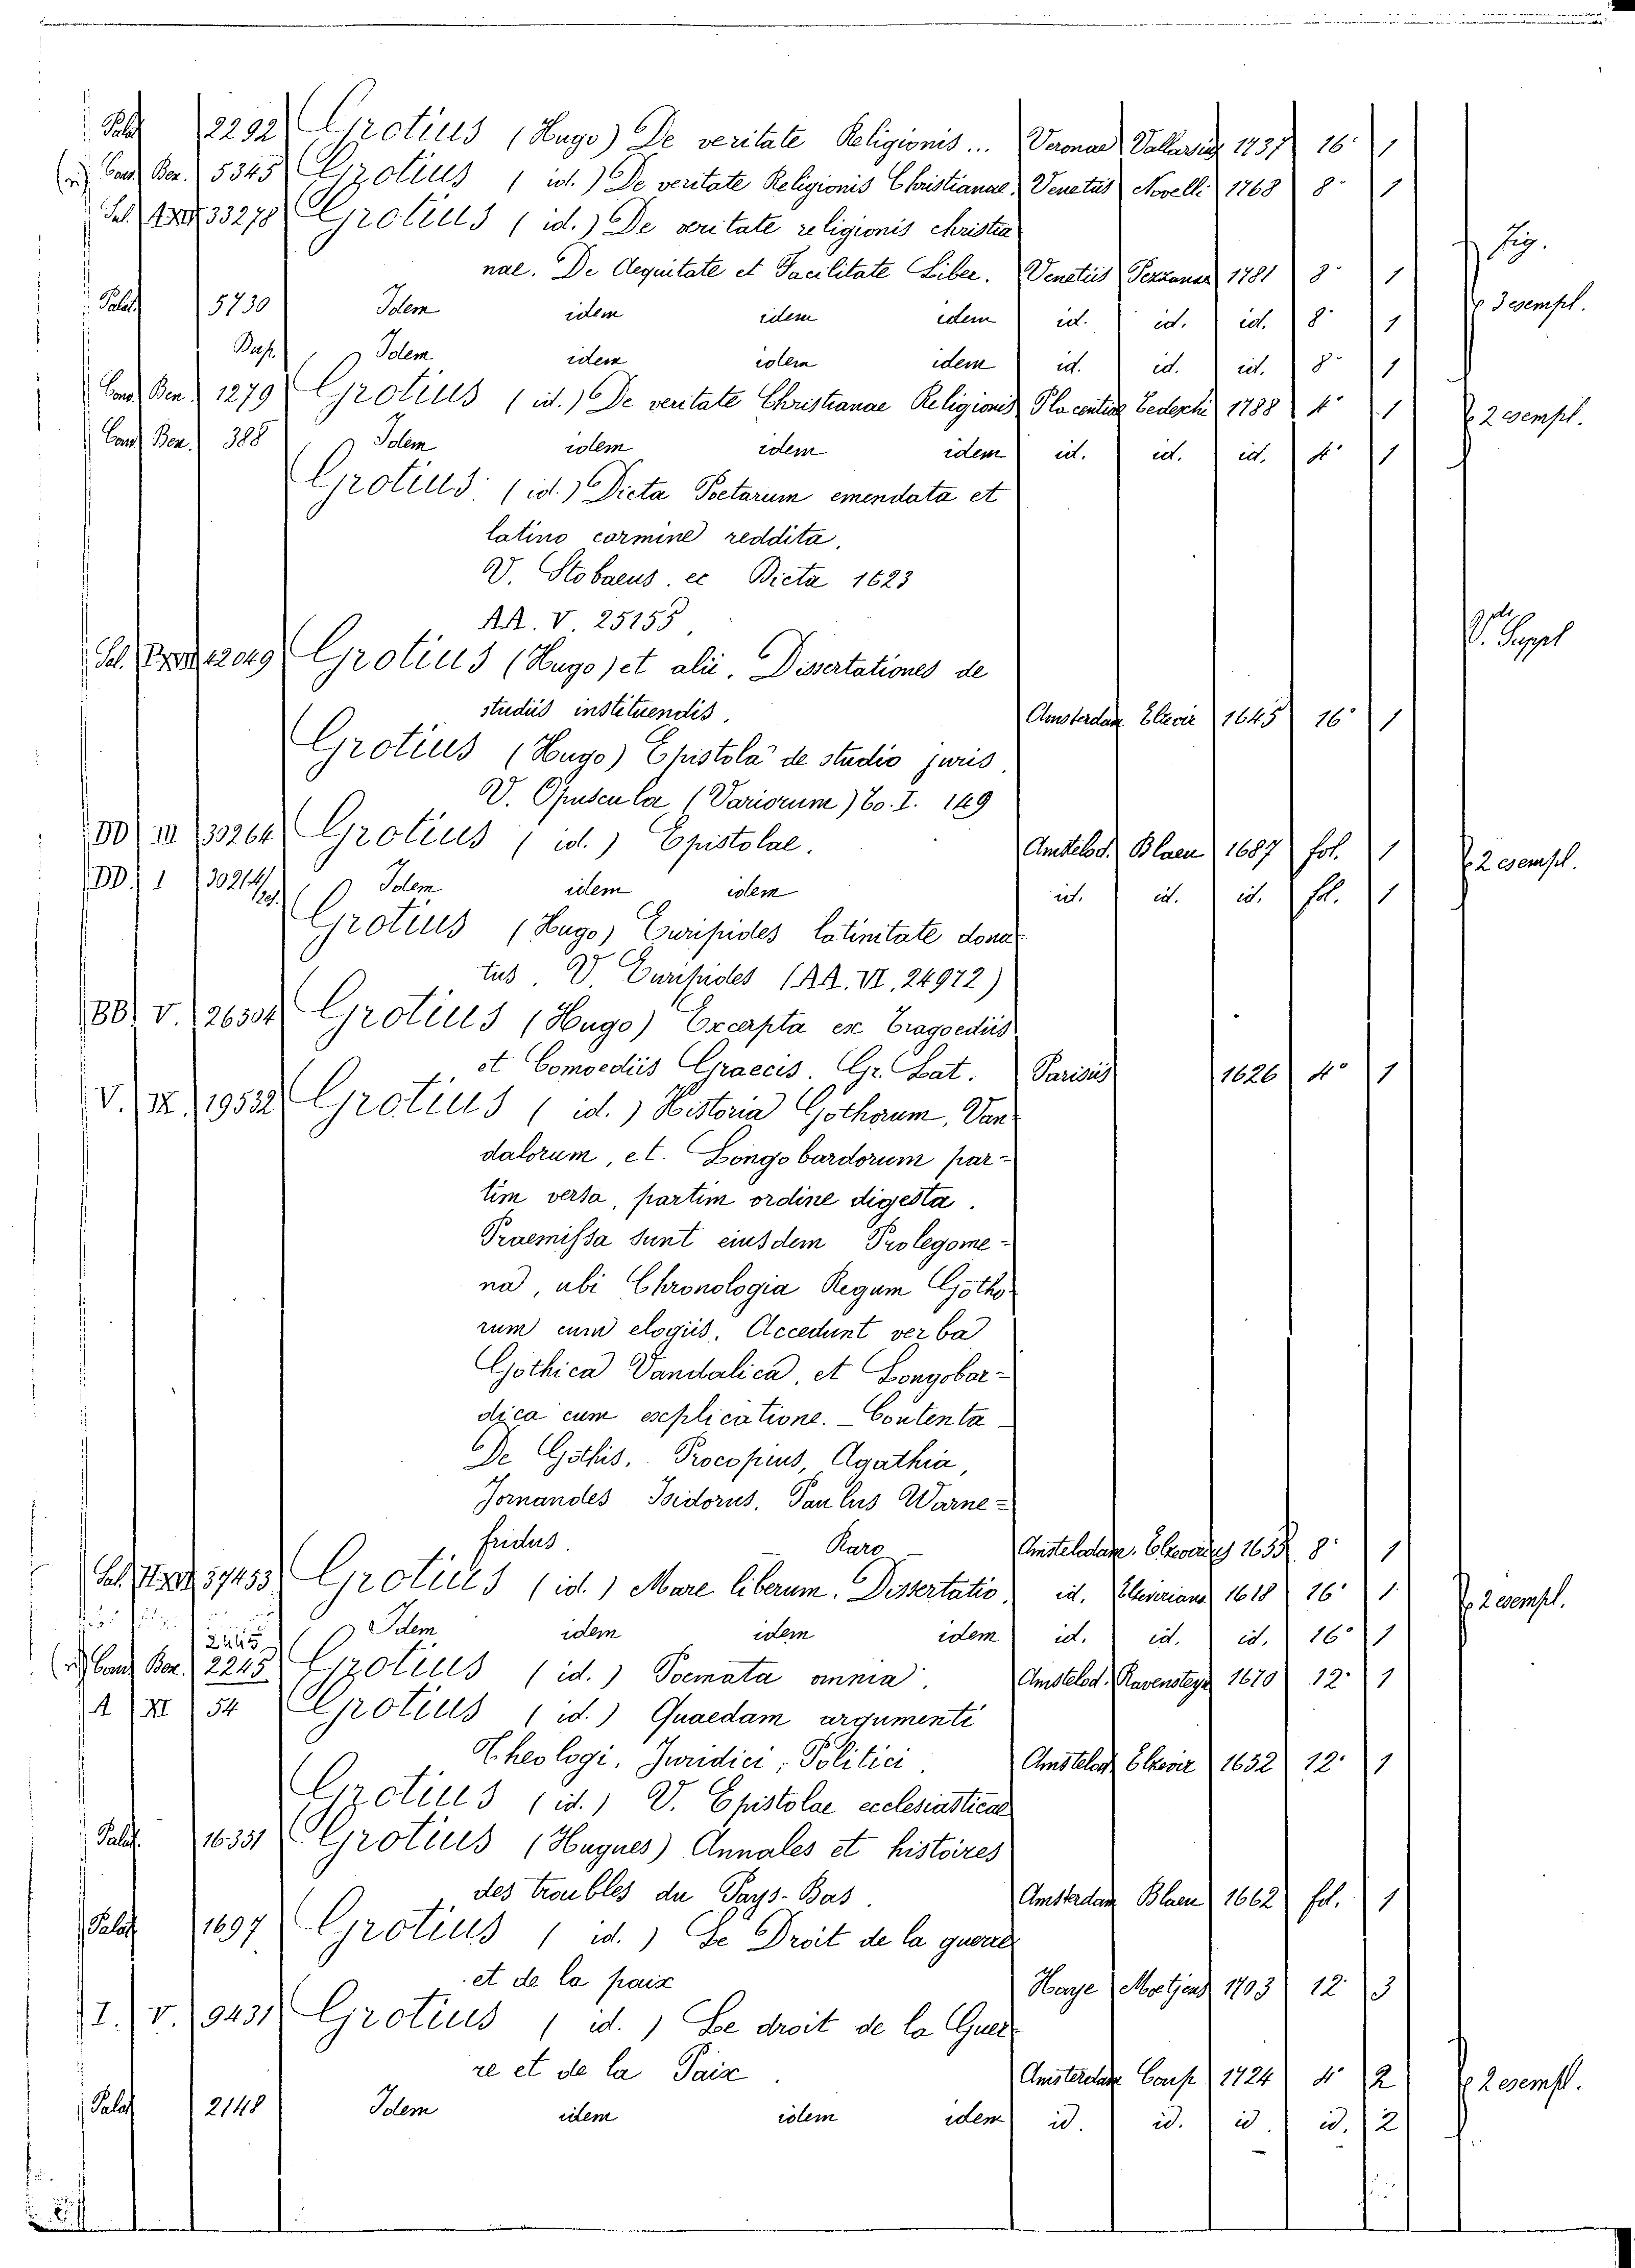 Palat 2292 Grotius (Hugo) De veritate Religionis... Veronae Vallarsius 1737 16° 1
(r) Cons Ben. 5345 Grotius (id.) De veritate Religionis Christianae. Venetiis Novelli 1768 8° 1
33278 Grotius (id.) De veritate religionis christia
nae. De Aequitate et Facilitate Liber. Venetiis Pezzana 1781 8° 1 fig.
Palat 5730 Idem idem idem idem id. id. id. 8° 1 3 esempl.
Bap. Idem idem idem idem id. id. id. 8° 1
Cons Ben 1279 Grotius (id.) De veritate Christianae Religionis Placentiae Tedeschi 1788 4° 1 2 esempl.
Cons Ben. 388 Idem idem idem idem id. id. id. 4° 1
Grotius (id.) Dicta Poetarum emendata et
latino carmine reddita.
V. Stobaeus. ec Dicta 1623
AA. V 25155
12049 Grotius (Hugo) et alii. Dissertationes de V. Suppl
studiis instituendis. Amsterdam Elzevir 1645 16° 1
Grotius (Hugo) Epistola de studio juris.
V. Opuscula (Variorum) To. I. 149
DD III 30264 Grotius (id.) Epistolae. Amstelod. Blaeu 1687 fol. 1 2 esempl.
DD. I 30214 Idem idem idem id. id. id. fol. 1
Grotius (Hugo) Euripides latinitate dona
tus. V. Euripides (AA. VI. 24972)
BB V. 26504 Grotius (Hugo) Excerpta ex Tragoediis
et Comoediis Graecis. Gr. Lat. Parisiis 1626 4° 1
V. IX. 19532 Grotius (id.) Historia Gothorum, Van
dalorum, et. Longobardorum par-
tim versa, partim ordine digesta.
Praemissa sunt eiusdem Prolegome-
na, ubi Chronologia Regum Gotho
rum cum elogiis. Accedunt verba
Gothica Vandalica, et Longobar-
dica cum explicatione. - Contenta -
De Gothis. Procopius, Agathia,
Jornandes Isidorus. Paulus Warne-
fridus. Raro Amstelodam. Elzevirius 1655 8° 1
37453 Grotius (id.) Mare liberum. Dissertatio. id. Elzeviriana 1618 16° 1 2 esempl.
2445 Idem idem idem idem id. id. id. 16° 1
(r) Cons Ben. 2245 Grotius (id.) Poemata omnia. Amstelod. Ravensteyn 1670 12° 1
A XI 54 Grotius (id.) Quaedam argumenti
Theologi, Juridici, Politici. Amstelod Elzevir 1652 12° 1
Grotius (id.) V. Epistolae ecclesiasticae
Palat. 16331 Grotius (Hugues) Annales et histoires
des troubles du Pays-Bas. Amsterdam Blaeu 1662 fol. 1
Palat 1697 Grotius (id.) Le Droit de la guerre
et de la paix Haye Moetjens 1703 12° 3
I. V. 9431 Grotius (id.) Le droit de la Guer
re et de la Paix. Amsterdam Coup 1724 4° 2 2 esempl.
Palat 2148 Idem idem idem idem id. id. id. id. 2